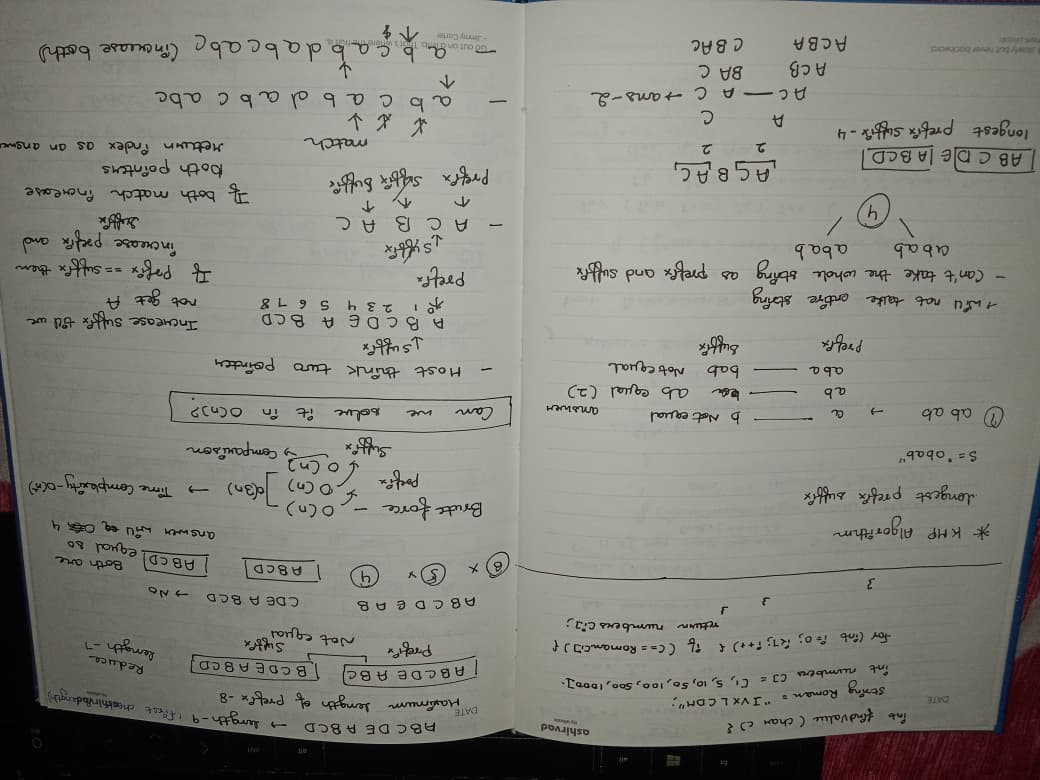 DATE
ashirvad
int findvalue (char c) {
string Roman = "IVXLCDM";
int numbers [] = [1, 5, 10, 50, 100, 500, 1000].
for (int i=0; i<7; i++) { if (c == Roman[i]) {
return numbers[i];
}
}
}
* KMP Algorithm
Longest prefix suffix
s = "abab"
abab → a — b Not equal
ab — ab equal (2) answer
aba — bab Not equal
Prefix Suffix
will not take entire string
- Can't take the whole string as prefix and suffix
abab abab
4
ABCDE ABCD
longest prefix suffix - 4
ACBAC
2 2
A C
AC — AC → ans - 2
ACB BAC
ACBA CBAC
DATE
ABCDEABCD → length - 9
Maximum length of prefix - 8
ABCDEABC BCDEABCD Reduce length - 1
Prefix Suffix
Not equal
ABCDEAB CDEABCD → No
8 x 5 x 4 ABCD ABCD Both are equal so
answer will 4
Brute force - O(n)
prefix O(n) O(3n) → Time Complexity - O(n²)
O(n)
Suffix → Comparison
Can we solve it in O(n)?
- Must think two pointers
↓ Suffix
A B C D E A B C D Increase suffix till we
0 1 2 3 4 5 6 7 8 not get A
prefix
If prefix == suffix then
increase prefix and
suffix
↓ Suffix
- A C B A C
↑ ↑ ↑
Prefix Suffix Suffix
If both match increase
both pointers
Return index as an answer
match
- a b c a b d a b c a b c
↑
- a b c a b d a b c a b c (increase both)
↑